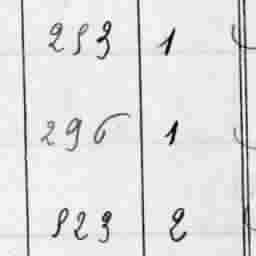 293 1
296 1
923 2